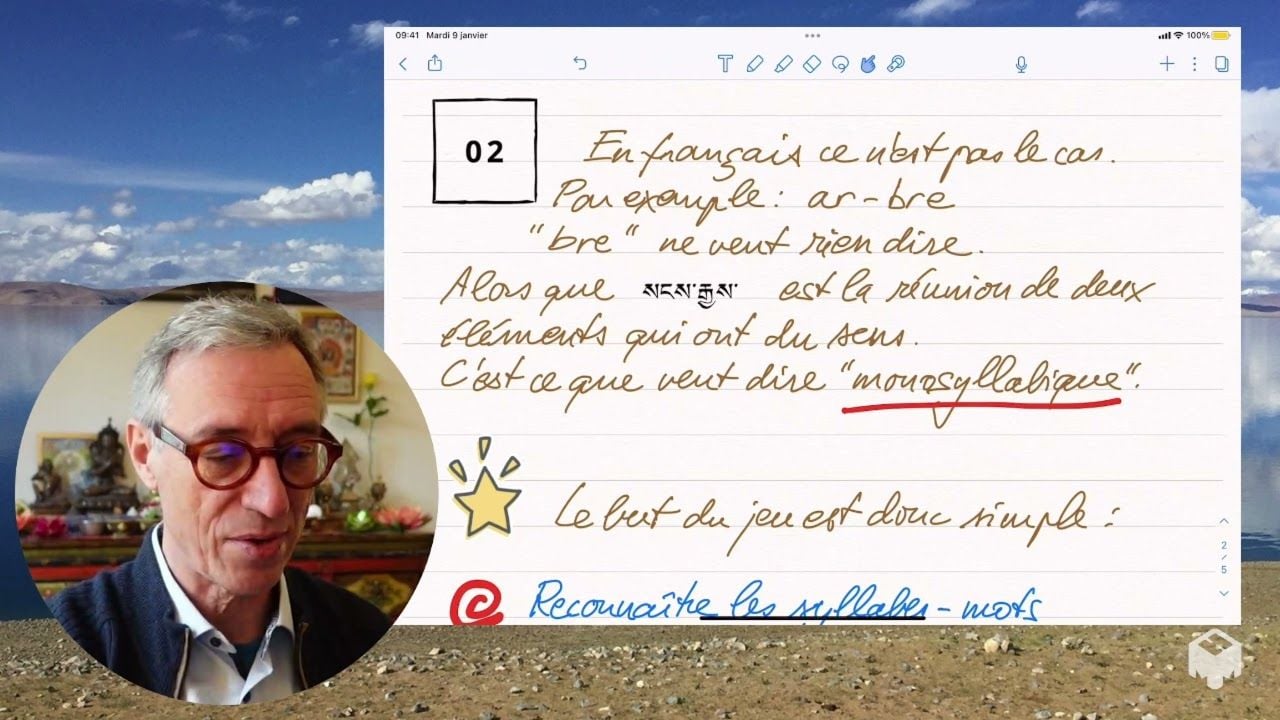 09:41 Mardi 9 janvier
100%
02
En français ce n'est pas le cas.
Par exemple : ar-bre
"bre" ne veut rien dire.
Alors que སངས་རྒྱས་ est la réunion de deux
éléments qui ont du sens.
C'est ce que veut dire "monosyllabique".
Le but du jeu est donc simple :
Reconnaître les syllabes-mots
2
5